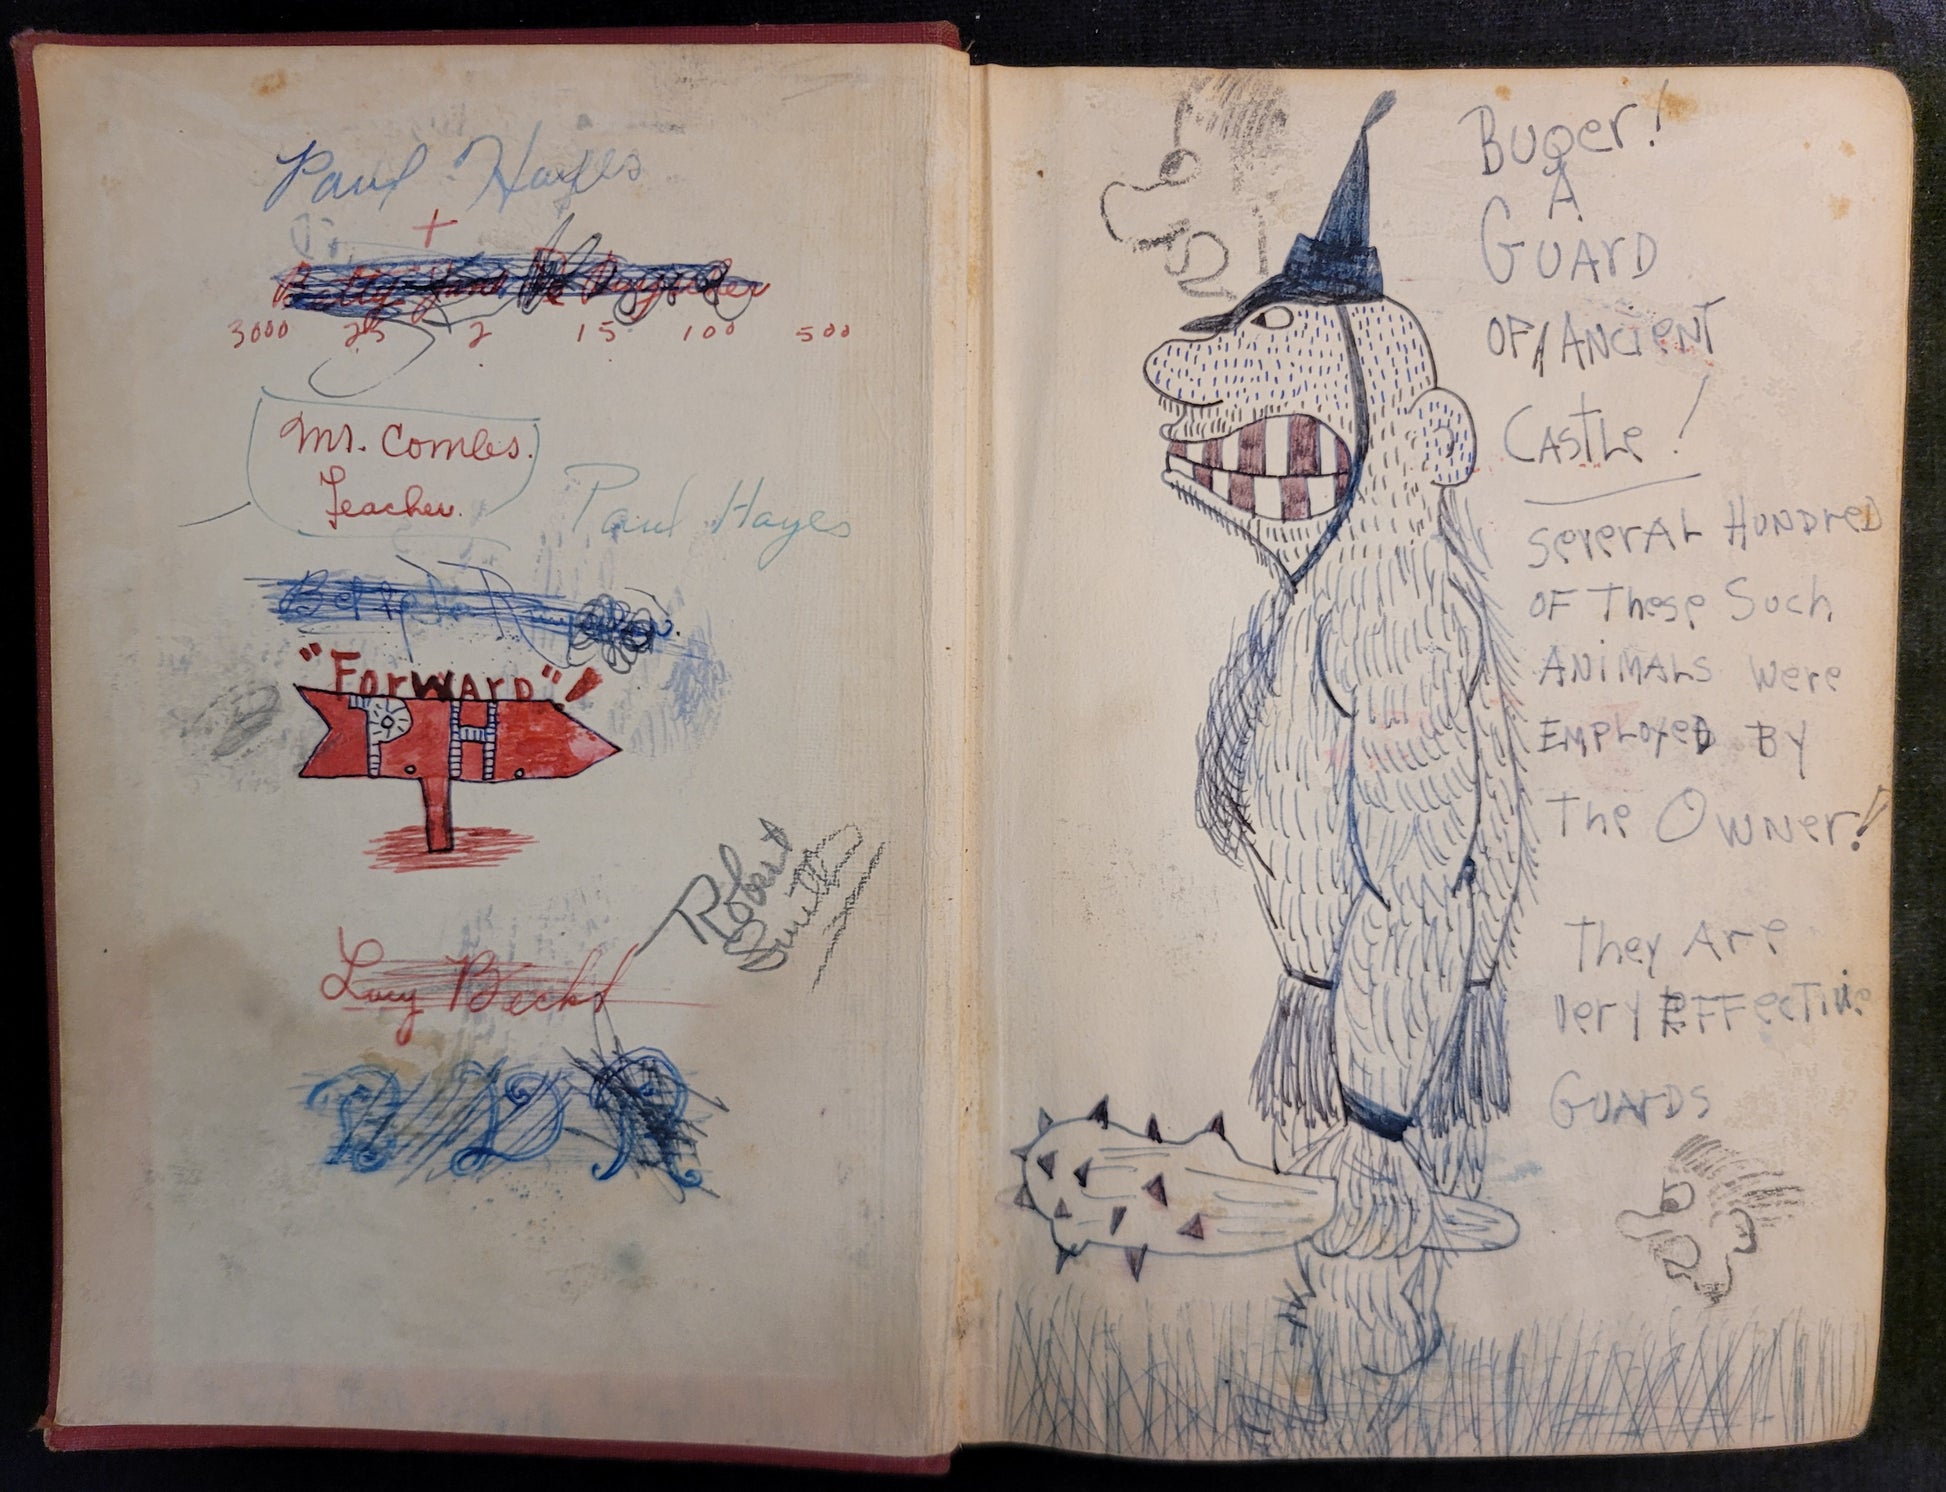 Paul Hayes
+
Betty
3000 25 2 15 100 500
Mr. Combs.
Teacher.
Paul Hayes
"Forward"!
P H
Robert
Smith
Lucy Beckt
Buger!
A
Guard
OF Ancient
Castle!
Several Hundred
OF These Such
Animals were
Employed By
The Owner!
They Are
Very Effective
Guards